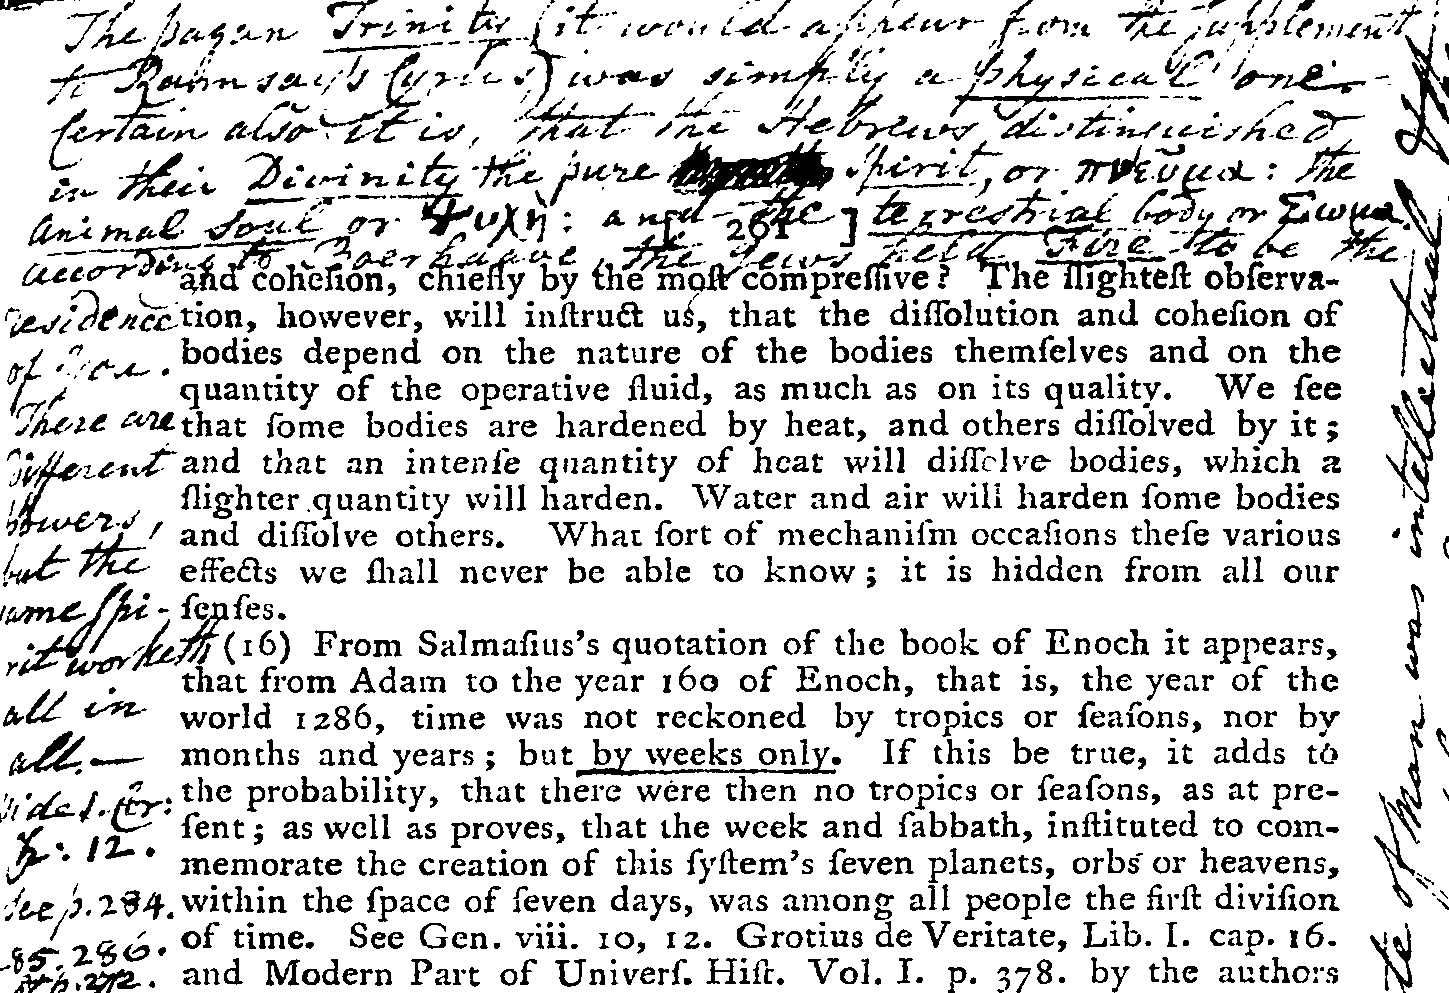 The pagan Trinity (it would appear from the Supplement
to Ramsay's Cyrus) was simply a physical one.
Certain also it is, that the Hebrews distinguished
in their Divinity the pure spirit, or πνεῦμα: the
animal soul or Ψυχὴ: and the terrestrial body or Σωμα.
according to Boerhaave, the Jews held Fire to be the
residence
of
There are
different
powers,
but the
same spi-
rit worketh
all in
all.—
Vide 1. Cor:
12.
See p. 284.
85. 286.
p. 272.
[ 261 ]
and coheſion, chiefly by the moſt compreſſive? The ſlighteſt obſerva-
tion, however, will inſtruct us, that the diſſolution and coheſion of
bodies depend on the nature of the bodies themſelves and on the
quantity of the operative fluid, as much as on its quality. We ſee
that ſome bodies are hardened by heat, and others diſſolved by it;
and that an intenſe quantity of heat will diſſolve bodies, which a
ſlighter quantity will harden. Water and air will harden ſome bodies
and diſſolve others. What ſort of mechaniſm occaſions theſe various
effects we ſhall never be able to know; it is hidden from all our
ſenſes.
(16) From Salmaſius's quotation of the book of Enoch it appears,
that from Adam to the year 160 of Enoch, that is, the year of the
world 1286, time was not reckoned by tropics or ſeaſons, nor by
months and years; but by weeks only. If this be true, it adds to
the probability, that there were then no tropics or ſeaſons, as at pre-
ſent; as well as proves, that the week and ſabbath, inſtituted to com-
memorate the creation of this ſyſtem's ſeven planets, orbs or heavens,
within the ſpace of ſeven days, was among all people the firſt diviſion
of time. See Gen. viii. 10, 12. Grotius de Veritate, Lib. I. cap. 16.
and Modern Part of Univerſ. Hiſt. Vol. I. p. 378. by the authors
of Man was intellectual